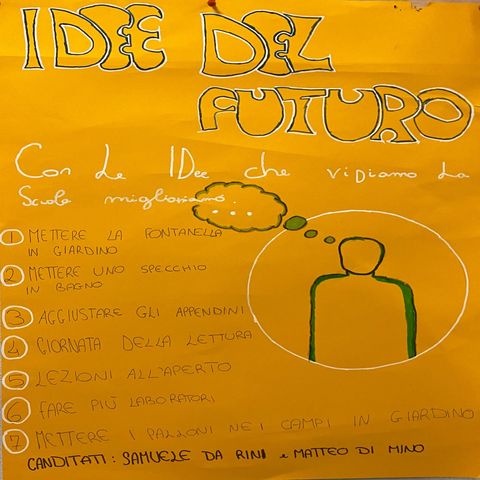 IDEE DEL
FUTURO
Con Le IDee che vi Diamo La
Scuola miglioriamo.
...
1 METTERE LA FONTANELLA
IN GIARDINO
2 METTERE UNO SPECCHIO
IN BAGNO
3 AGGIUSTARE GLI APPENDINI
4 GIORNATA DELLA LETTURA
5 LEZIONI ALL'APERTO
6 FARE PIÙ LABORATORI
7 METTERE I PALLONI NEI CAMPI IN GIARDINO
CANDITATI: SAMUELE DA RINI e MATTEO DI MINO